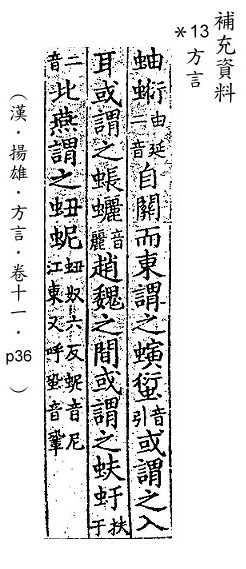 補充資料
*13
方言
蚰𧍢由延二音自關而東謂之螾䘆音引或謂之入
耳或謂之蜄䗶音麗趙魏之間或謂之蚨虶扶于
二音北燕謂之䖡蚭䖡奴六反蚭音尼江東又呼蛩音鞏
（漢．揚雄．方言．卷十一．p36）